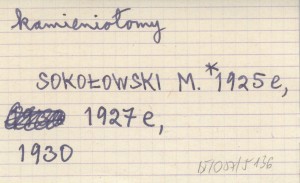 kamieniołomy
SOKOŁOWSKI M. *1925e,
1927e,
1930